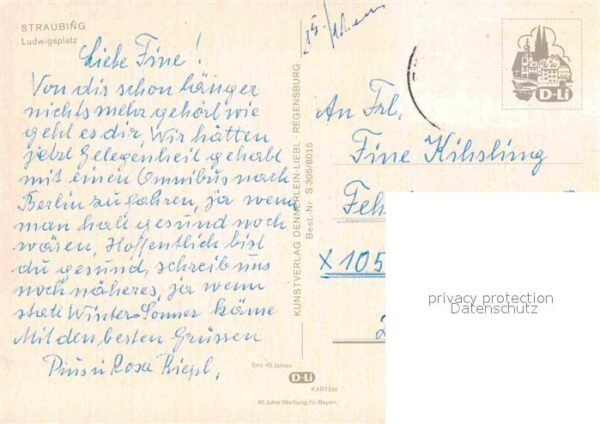 STRAUBING
Ludwigsplatz
Liebe Fine!
Von dir schon länger
nichts mehr gehört wie
geht es dir, Wir hätten
jetzt Gelegenheit gehabt
mit einen Omnibus nach
Berlin zu fahren, ja wenn
man halt gesund noch
wären, Hoffentlich bist
du gesund, schreib uns
noch näheres, ja wenn
statt Winter Sommer käme
Mit den besten Grüssen
Pius u Rosa Riepl.
KUNSTVERLAG DENNERLEIN-LIEBL REGENSBURG
Best. Nr. S 305/8015
Seit 45 Jahren
D-Li
KARTEN
45 Jahre Werbung für Bayern
D-Li
An Frl.
Fine Kihsling
Feh
X 105
privacy protection
Datenschutz